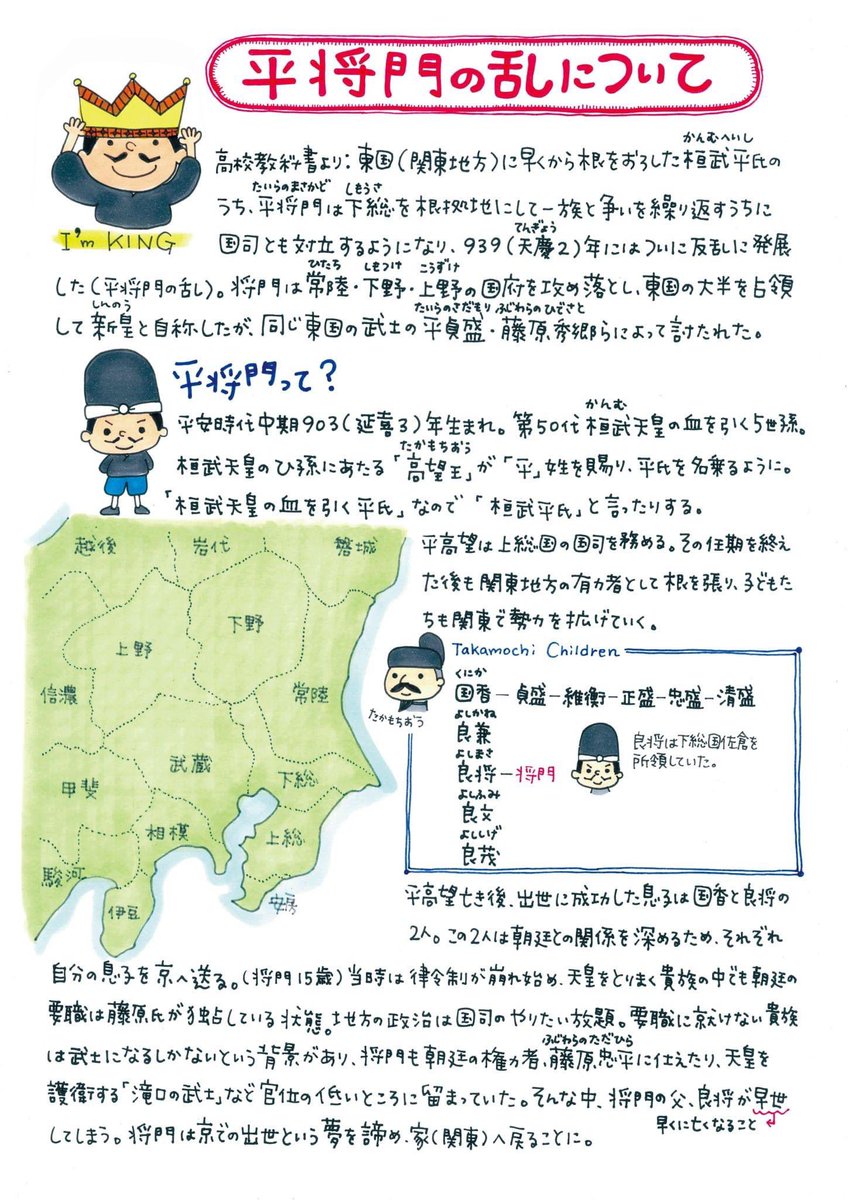 平将門の乱について
I'm KING
かんむへいし
高校教科書より：東国（関東地方）に早くから根をおろした桓武平氏の
たいらのまさかど しもうさ
うち、平将門は下総を根拠地にして一族と争いを繰り返すうちに
てんぎょう
国司とも対立するようになり、939（天慶2）年にはついに反乱に発展
ひたち しもつけ こうずけ
した（平将門の乱）。将門は常陸・下野・上野の国府を攻め落とし、東国の大半を占領
しんのう たいらのさだもり ふじわらのひでさと
して新皇と自称したが、同じ東国の武士の平貞盛・藤原秀郷らによって討たれた。
平将門って？
かんむ
平安時代中期903（延喜3）年生まれ。第50代桓武天皇の血を引く5世孫。
たかもちおう
桓武天皇のひ孫にあたる「高望王」が「平」姓を賜り、平氏を名乗るように。
「桓武天皇の血を引く平氏」なので「桓武平氏」と言ったりする。
越後 岩代 磐城
上野 下野
信濃 常陸
甲斐 武蔵 下総
相模 上総
駿河 伊豆 安房
平高望は上総国の国司を務める。その任期を終え
た後も関東地方の有力者として根を張り、子どもた
ちも関東で勢力を拡げていく。
Takamochi Children
たかもちおう
くにか
国香－貞盛－維衡－正盛－忠盛－清盛
よしかね
良兼
よしまさ
良将－将門
よしふみ
良文
よししげ
良茂
良将は下総国佐倉を
所領していた。
平高望亡き後、出世に成功した息子は国香と良将の
2人。この2人は朝廷との関係を深めるため、それぞれ
自分の息子を京へ送る。（将門15歳）当時は律令制が崩れ始め、天皇をとりまく貴族の中でも朝廷の
要職は藤原氏が独占している状態。地方の政治は国司のやりたい放題。要職に就けない貴族
ふじわらのただひら
は武士になるしかないという背景があり、将門も朝廷の権力者、藤原忠平に仕えたり、天皇を
護衛する「滝口の武士」など官位の低いところに留まっていた。そんな中、将門の父、良将が早世
してしまう。将門は京での出世という夢を諦め、家（関東）へ戻ることに。
早くに亡くなること